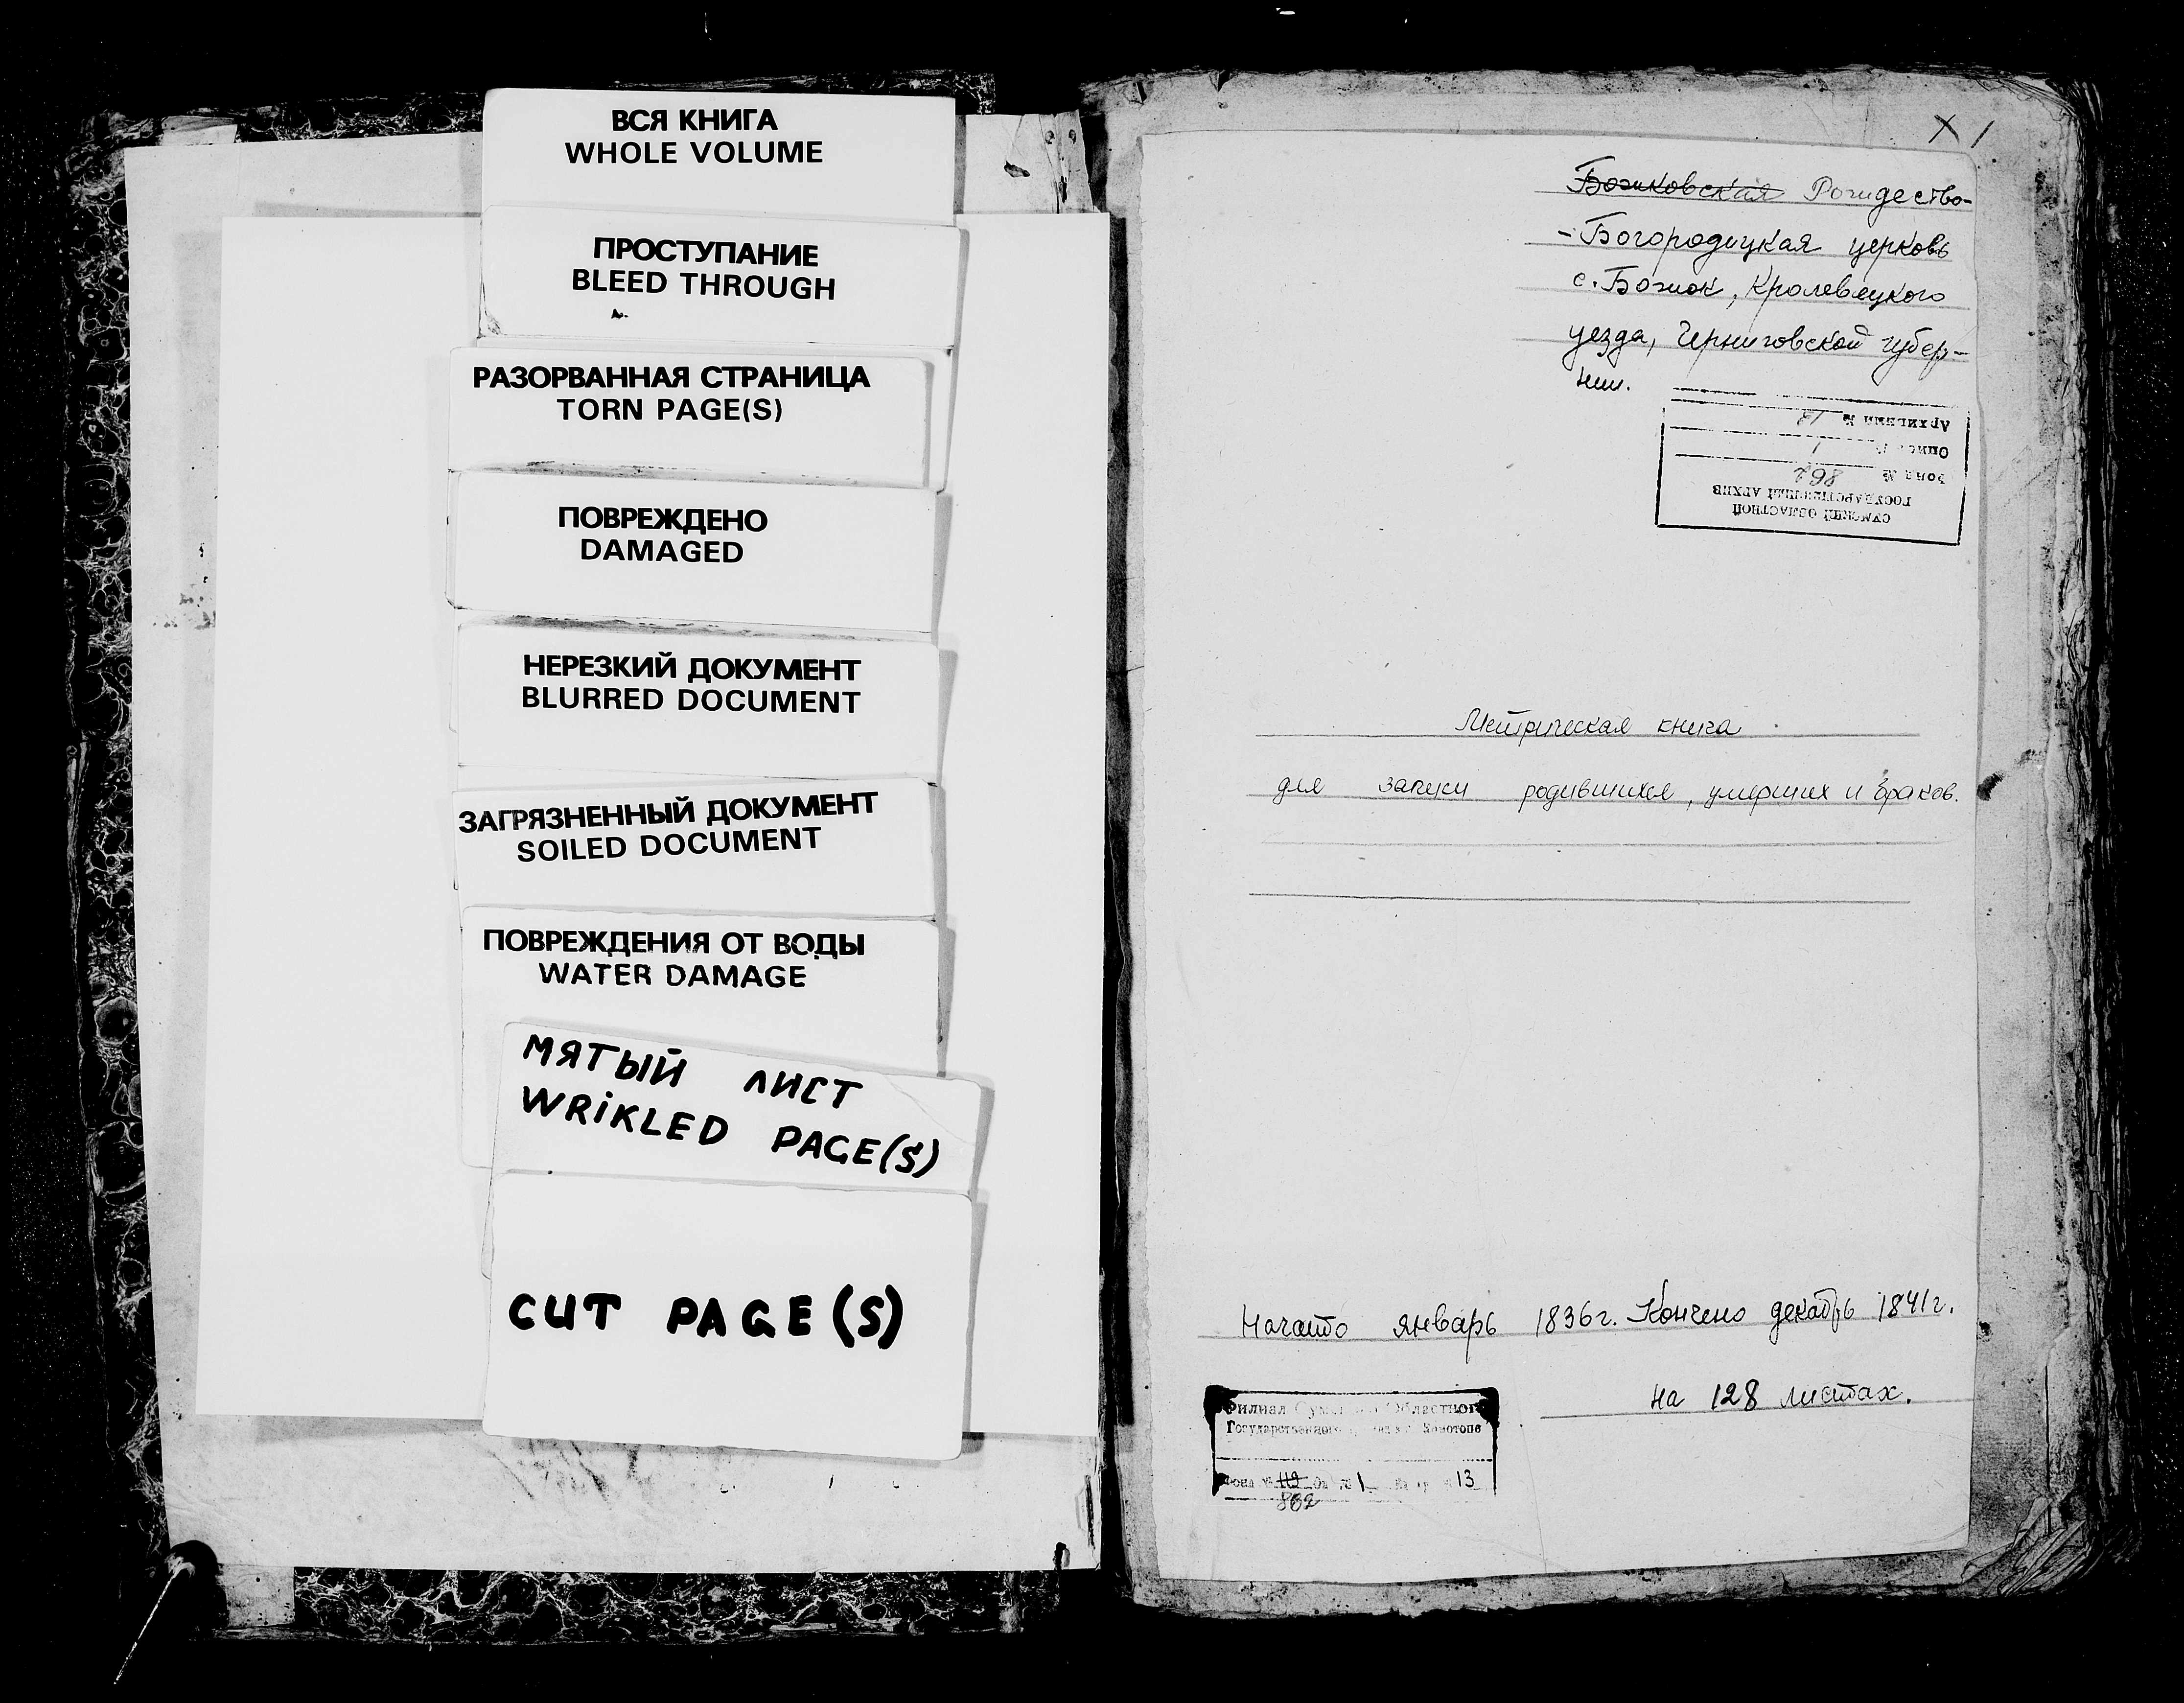 ВСЯ КНИГА
WHOLE VOLUME
ПРОСТУПАНИЕ
BLEED THROUGH
РАЗОРВАННАЯ СТРАНИЦА
TORN PAGE(S)
ПОВРЕЖДЕНО
DAMAGED
НЕРЕЗКИЙ ДОКУМЕНТ
BLURRED DOCUMENT
ЗАГРЯЗНЕННЫЙ ДОКУМЕНТ
SOILED DOCUMENT
ПОВРЕЖДЕНИЯ ОТ ВОДЫ
WATER DAMAGE
МЯТЫЙ ЛИСТ
WRIKLED PAGE(S)
CUT PAGE(S)
Божковская Рождество-
-Богородицкая церковь
с. Божок, Кролевецкого
уезда, Черниговской губер-
нии.
СУМСКИЙ ОБЛАСТНОЙ
ГОСУДАРСТВЕННЫЙ АРХИВ
Фонд № 862
Опись № 1
Архивный №
Метрическая книга
для записи родившихся, умерших и браков.
Начато январь 1836г. Кончено декабрь 1841г.
на 128 листах.
Филиал Областного
Государственного Конотопе
Фонд № 119 1 13
862